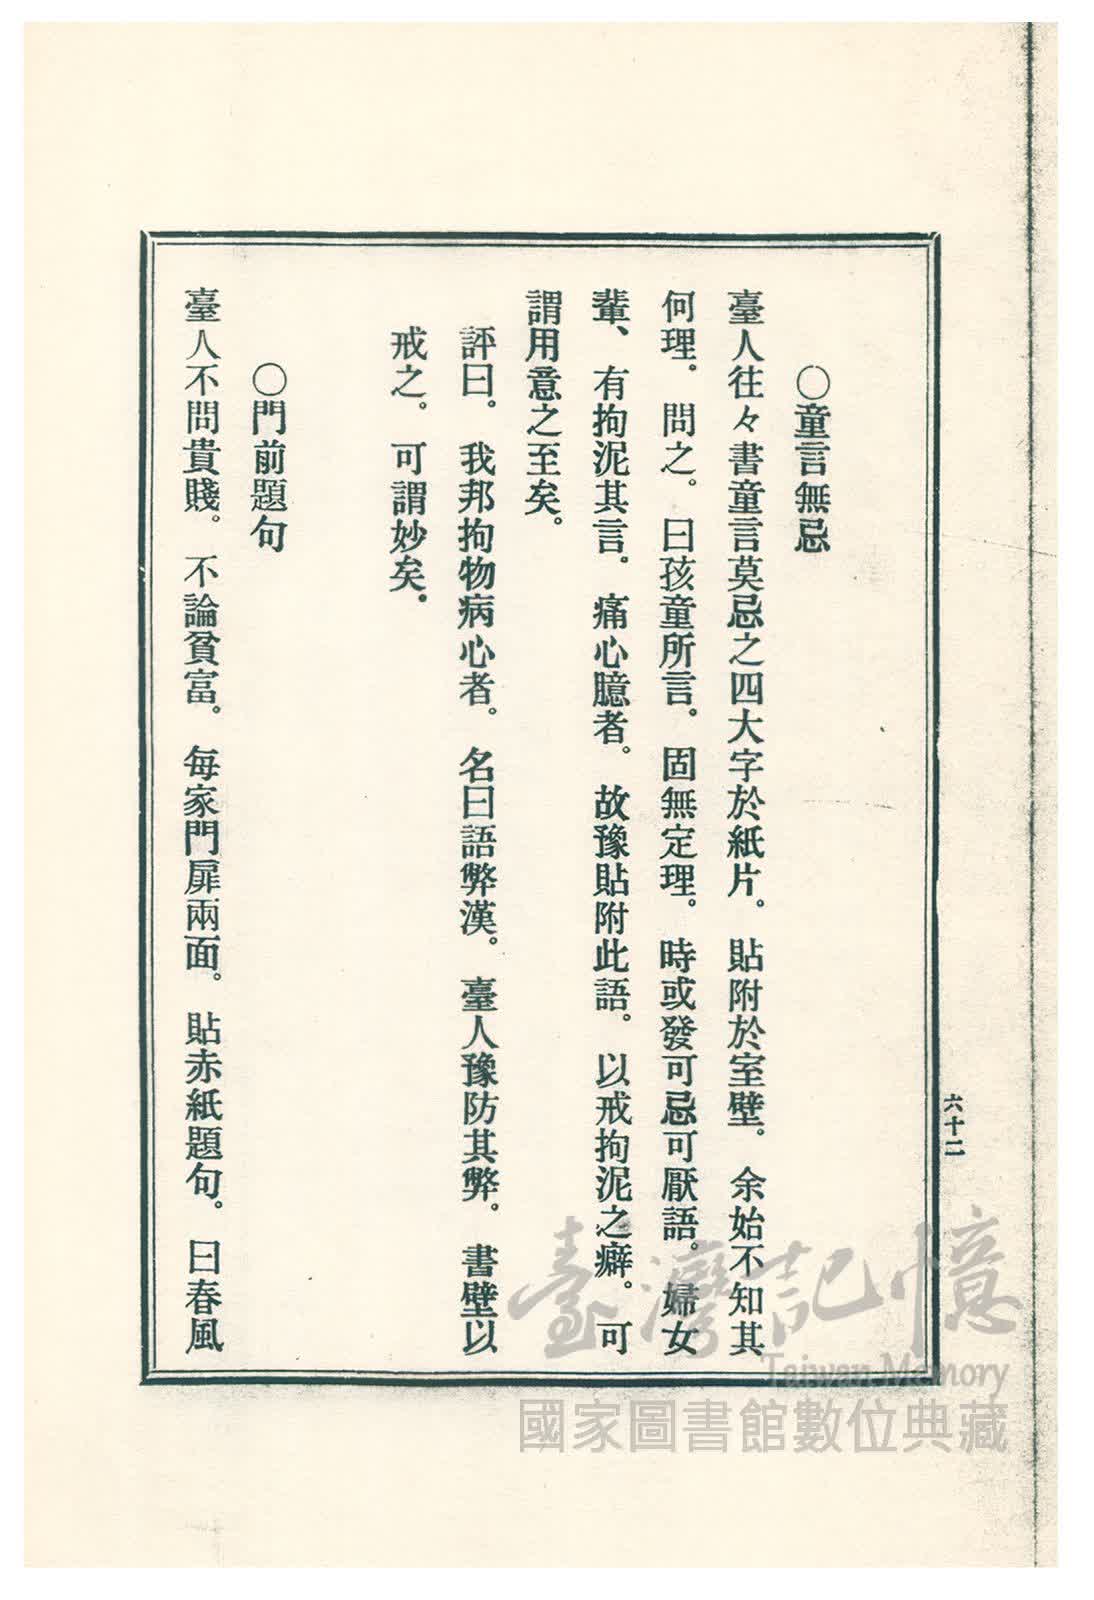 ○童言無忌
臺人往々書童言莫忌之四大字於紙片。貼附於室壁。余始不知其
何理。問之。曰孩童所言。固無定理。時或發可忌可厭語。婦女
輩、有拘泥其言。痛心臆者。故豫貼附此語。以戒拘泥之癖。可
謂用意之至矣。
評曰。我邦拘物病心者。名曰語弊漢。臺人豫防其弊。書壁以
戒之。可謂妙矣。
○門前題句
臺人不問貴賤。不論貧富。每家門扉兩面。貼赤紙題句。曰春風
六十二
臺灣記憶
Taiwan Memory
國家圖書館數位典藏